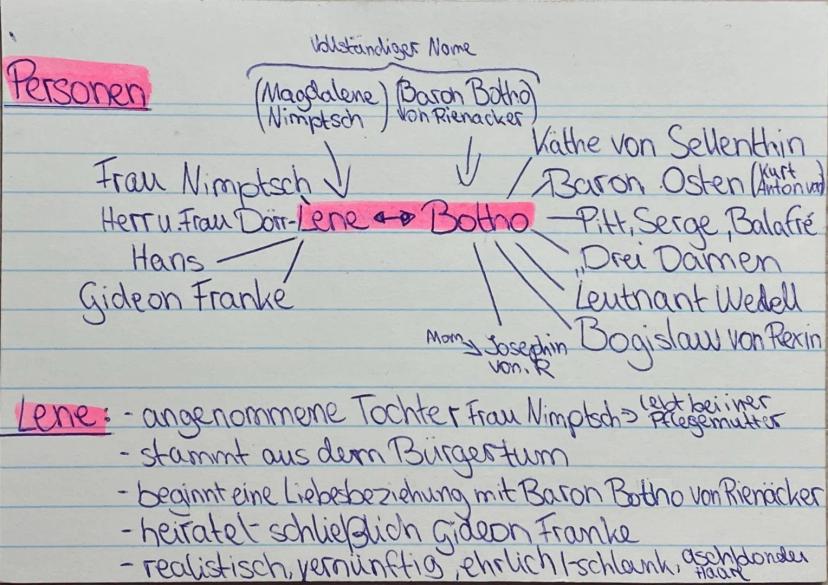 Vollständiger Name
Personen
(Magdalene Nimptsch) (Baron Botho von Rienäcker)
Käthe von Sellenthin
Frau Nimptsch
Baron Osten (Kurt Anton von)
Herr u. Frau Dörr - Lene ↔ Botho - Pitt, Serge, Balafré
Hans
Drei Damen
Gideon Franke
Leutnant Wedell
Bogislaw von Rexin
Mom → Josephin von. R
Lene: - angenommene Tochter Frau Nimptsch → lebt bei iher Pflegemutter
- stammt aus dem Bürgertum
- beginnt eine Liebesbeziehung mit Baron Botho von Rienäcker
- heiratet schließlich Gideon Franke
- realistisch, vernünftig, ehrlich / - schlank, aschblonder Haare